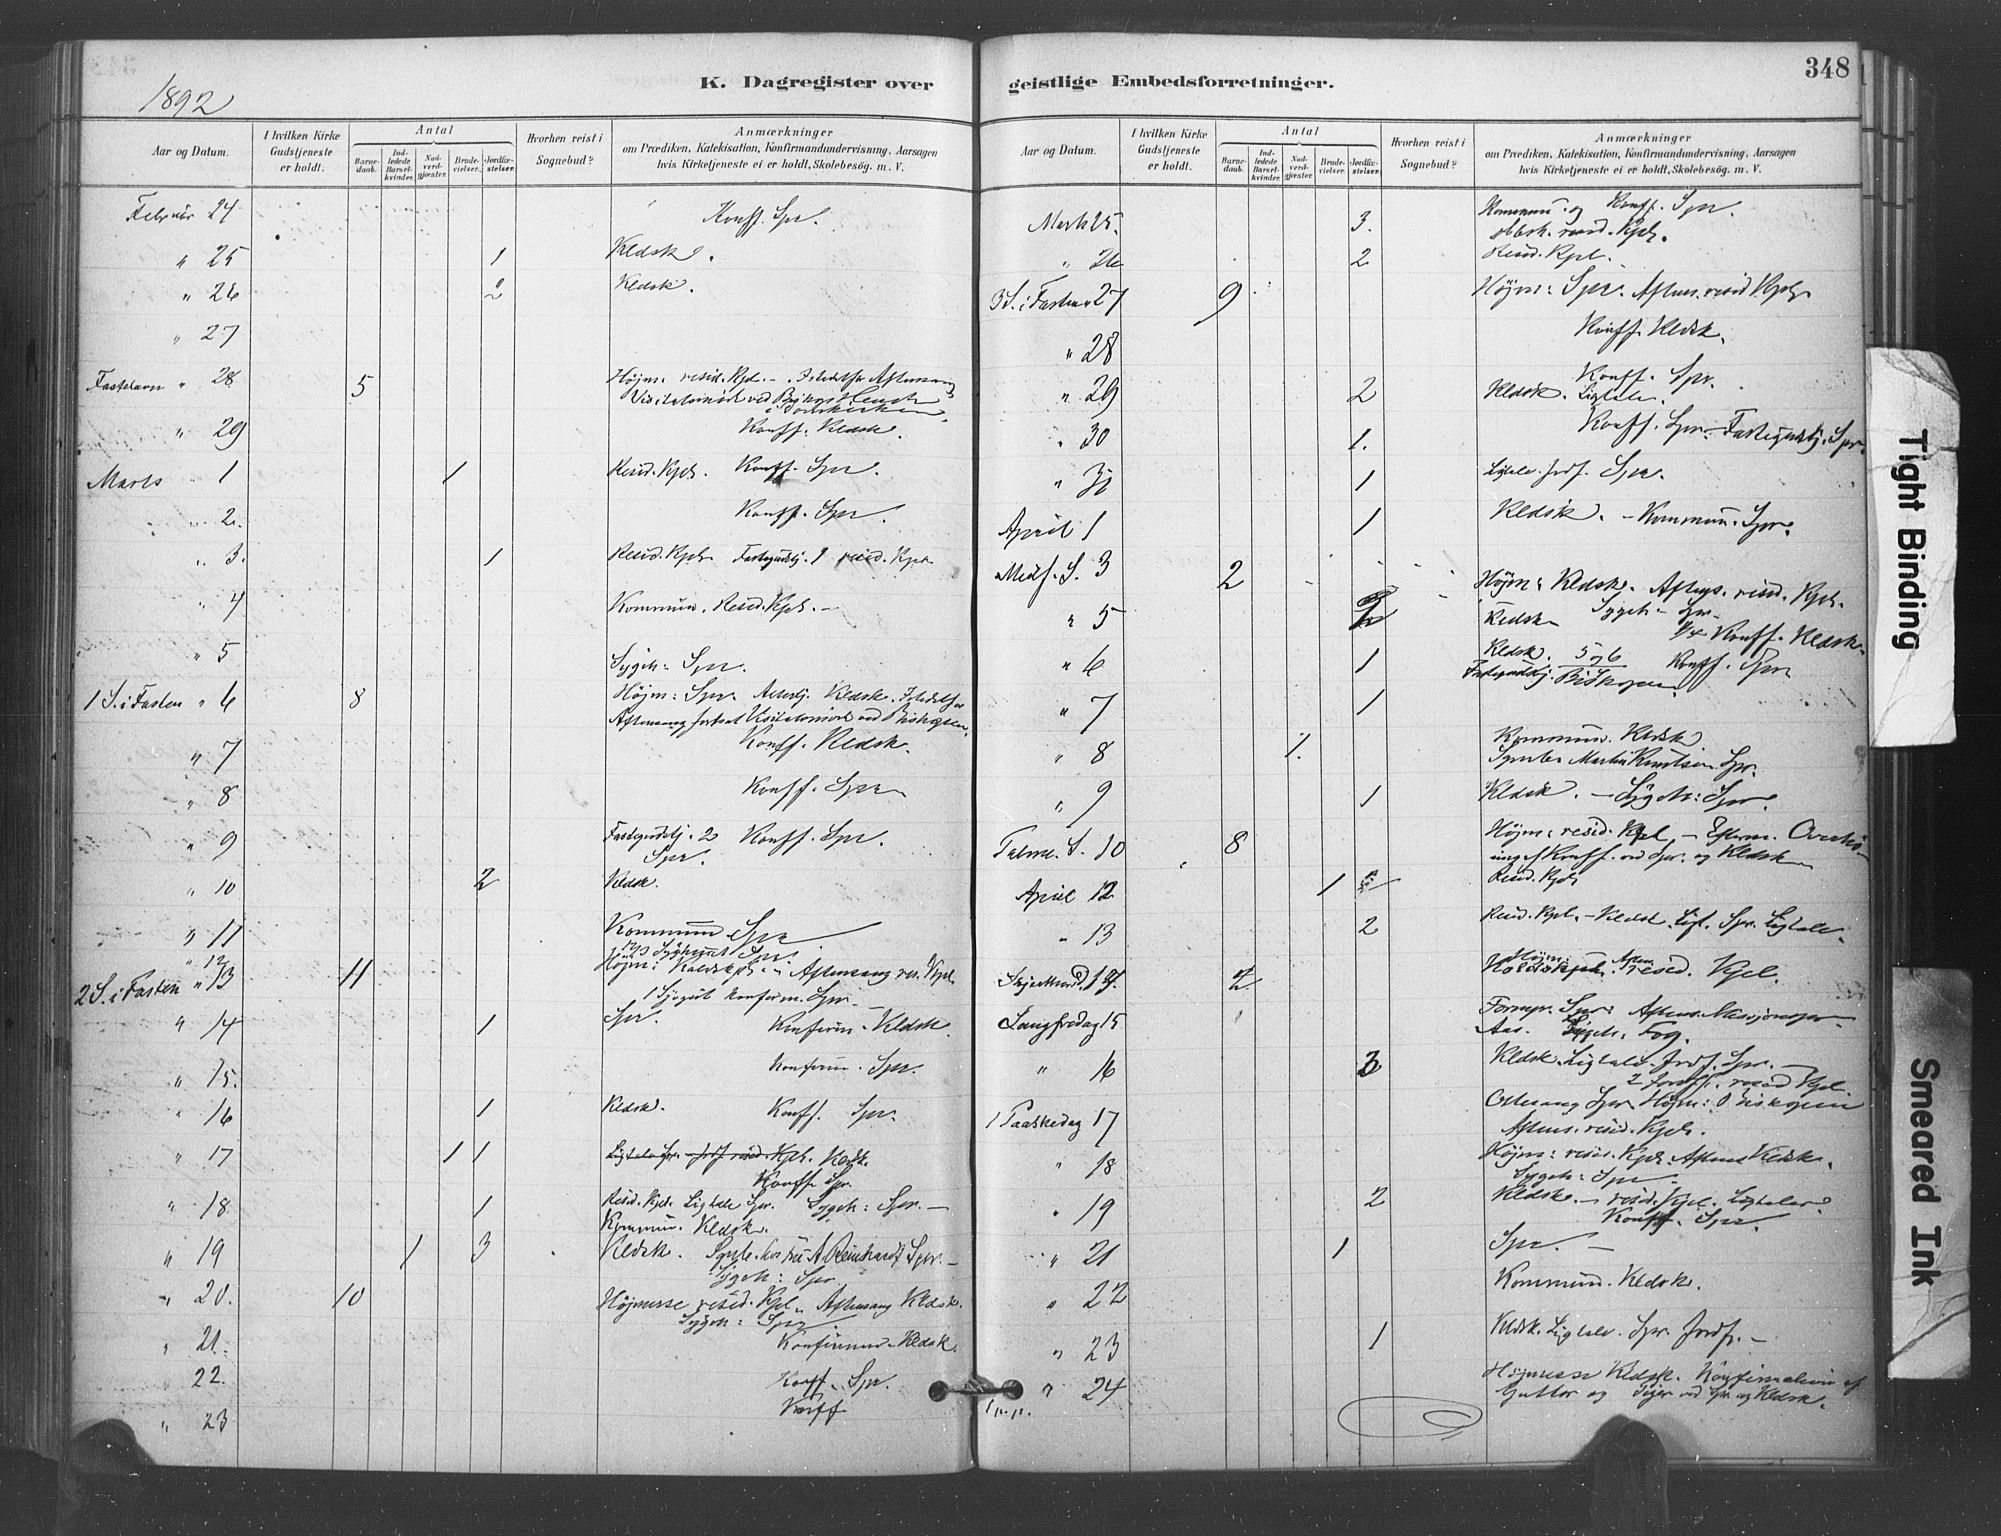 1892
K. Dagregister over
Aar og Datum.
I hvilken Kirke Gudstjeneste er holdt.
Antal
Barnedaab.
Indledede Barselkvinder.
Nadverdgjæster.
Brudevielser.
Jordfæstelser.
Hvorhen reist i Sognebud?
Anmærkninger
om Prædiken, Katekisation, Konfirmandundervisning, Aarsagen
hvis Kirketjeneste ei er holdt, Skolebesøg. m. V.
Februar 24 Konff. Spr.
" 25 1 Kldsk.
" 26 2 Kldsk.
" 27
Fastelavn " 28 5 Højm: resid. Kpl. -
Visitatsmöde ved Biskop
" 29 Konff. Kldsk.
Marts 1 1 Resid. Kpl. Konff. Spr.
" 2. Konff. Spr.
" 3. 1 Resid. Kpl. Fastegudstj. 1 resid. Kpl.
" 4 Kommun. Resid. Kpl. -
" 5 Sygeh: Spr.
1 S. i Fasten " 6 8 Højm: Spr. Kldsk.
Aftensang ved Biskopen.
" 7 Konff. Kldsk.
" 8 Konff. Spr.
" 9 Fastegudstj. 2 Konff. Spr.
Spr.
" 10 2 Kldsk.
" 11 Kommun Spr
" 12
2 S. i Fasten " 13 11 Højm: Kaldskpl. Aftensang res. Kpl.
" 14 1 Spr. Konfirm. Kldsk.
" 15. Konfirm. Spr.
" 16 1 Kldsk. Konff. Spr.
" 17 1 1 Ligtale Spr. - Jordf. resid. Kpl. Kldsk.
Konff. Spr.
" 18 1 Resid. Kpl. Ligtale Spr. Sygeh: Spr. -
Kommun. Kldsk.
" 19 1 3 Kldsk. hos Fru A. Reinhardt Spr. -
Sygeh: Spr.
" 20. 10 Højmesse resid. Kpl. Aftensang Kldsk.
Sygeh: Spr.
" 21. Konfirmand. Kldsk.
" 22. Konff. Spr.
" 23 Konff
348
geistlige Embedsforretninger.
Aar og Datum.
I hvilken Kirke Gudstjeneste er holdt.
Antal
Barnedaab.
Indledede Barselkvinder.
Nadverdgjæster.
Brudevielser.
Jordfæstelser.
Hvorhen reist i Sognebud?
Anmærkninger
om Prædiken, Katekisation, Konfirmandundervisning, Aarsagen
hvis Kirketjeneste ei er holdt, Skolebesøg. m. V.
Marts 25. 3. Kommun. og Konff. Spr.
resid. Kpl.
" 26 2 Resid. Kpl.
3 S. i Fasten 27 9 Højm: Spr. Aftens. resid Kpl.
" 28 Konff. Kldsk.
" 29 2 Konff. Spr.
Kldsk. Ligtale.
" 30 1. Konff. Spr. Fastegudstj. Spr.
" 31 1 Ligtale Jordf. Spr.
April 1 1 Kldsk. - Kommun. Spr.
Midf. S. 3 2 Højm: Kldsk. Aftens. resid. Kpl.
" 5 2 Kldsk Sygeh - Spr.
Konff. Kldsk.
" 6 1 Kldsk. 5 og 6 Konff. Spr
Fastegudstj. Biskopen.
" 7 1
" 8 1. Kommun. Kldsk
Martin Knutsen Spr.
" 9 1 Kldsk. - Sygeh: Spr.
Palme. S. 10 8 Højm: resid. Kpl. - Efterm. Overhø-
ring af Konff. ved Spr. og Kldsk
April 12 1 Resid. Kpl
" 13 2 Resid. Kpl. - Kldsk. Spr. Ligtale.
Skjærthorsd. 14. 2 Højm: Kaldskpl. Aften. resid. Kpl.
Langfredag 15 Spr: Aftens. Missionspr.
Aas. Sygeh. Fog.
" 16 3 Kldsk. Ligtale. Jordf. Spr.
2 Jordf. resid Kpl.
1 Paaskedag 17 Ottesang Spr. Højm: Biskopen
Aftens. resid. Kpl.
" 18 Højm: resid. Kpl. Aftens Kldsk.
Sygeh: Spr.
" 19 2 Kldsk. - resid. Kpl. Ligtaler
Konff. Spr.
" 21 1 Spr. -
" 22 Kommun. Kldsk.
" 23 1 Kldsk. Ligtale. Spr. Jordf. -
" 24 Højmesse Kldsk. Konfirmation af
Gutter og Piger ved Spr. og Kldsk.
Tight Binding
Smeared Ink